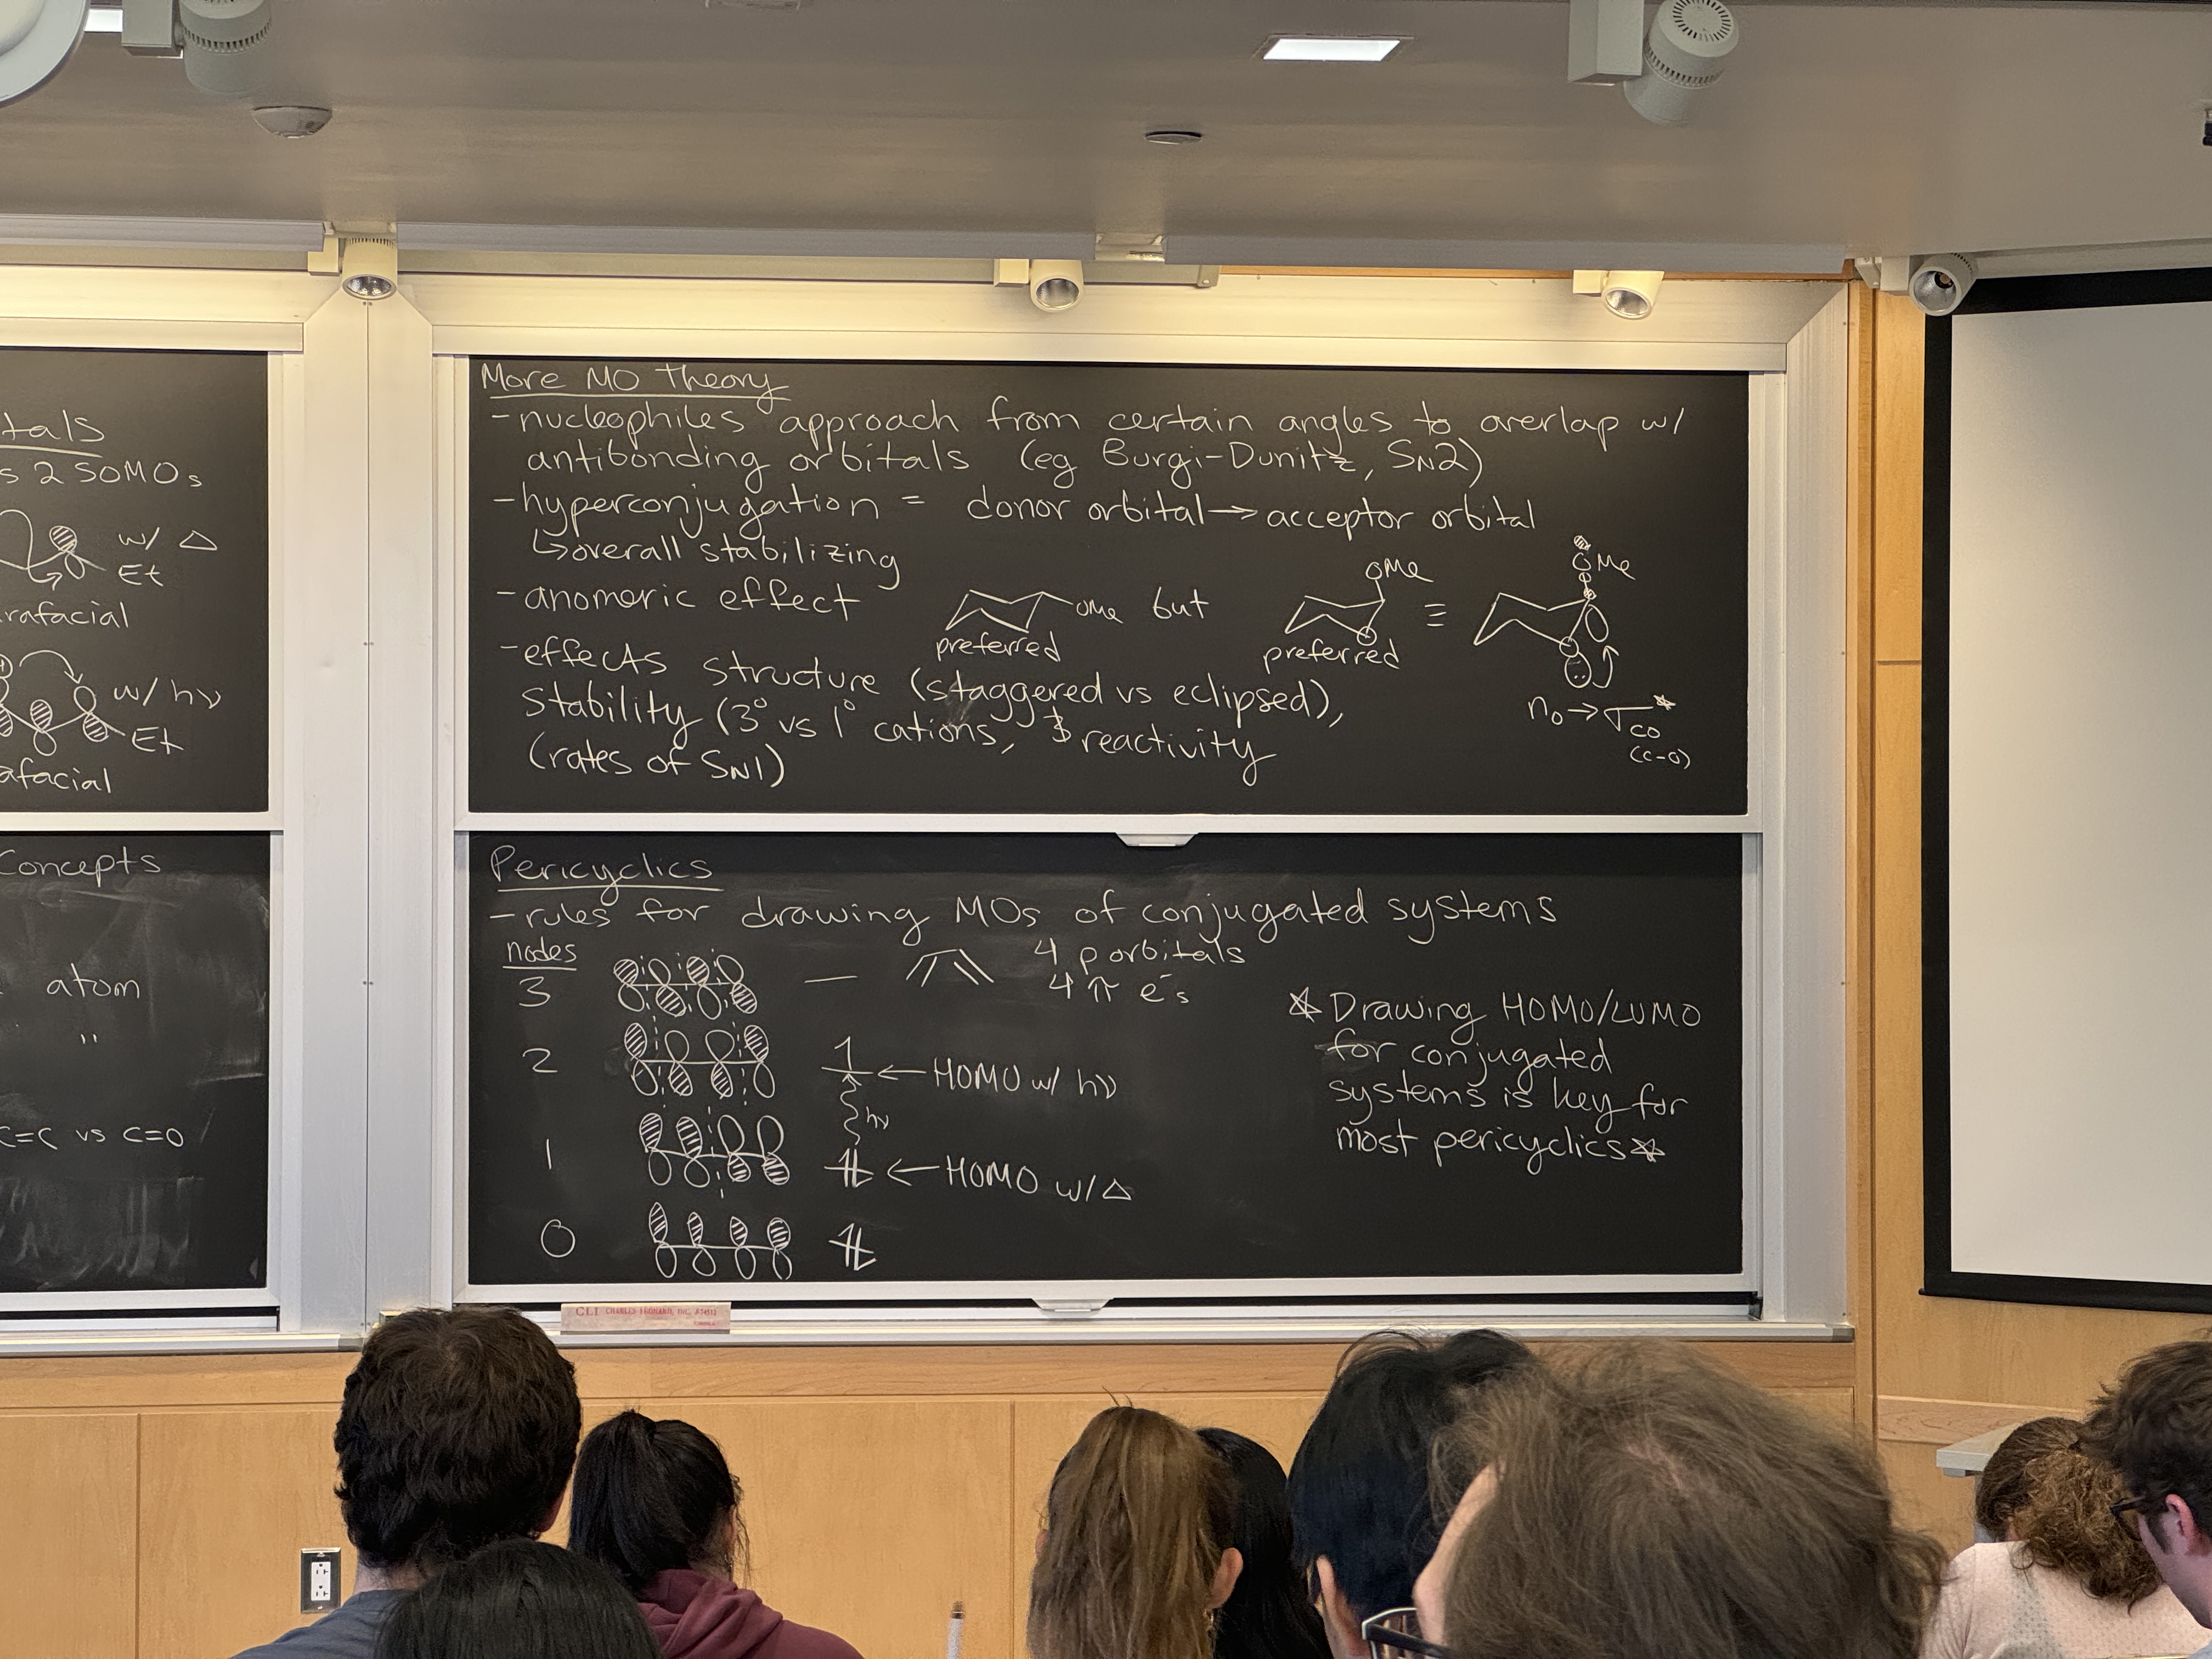 tals
s 2 SOMOs
w/ △
Et
rafacial
w/ hν
Et
afacial
Concepts
atom
"
C=C vs C=O
More MO theory
-nucleophiles approach from certain angles to overlap w/
antibonding orbitals (eg Burgi-Dunitz, SN2)
-hyperconjugation = donor orbital → acceptor orbital
↳overall stabilizing
-anomeric effect
OMe but
preferred
OMe
O
preferred
≡
OMe
O
n₀→σ*CO
(C-O)
-effects structure (staggered vs eclipsed),
stability (3° vs 1° cations, & reactivity
(rates of SN1)
Pericyclics
-rules for drawing MOs of conjugated systems
nodes
3
4 p orbitals
4 π e⁻s
2
1 ← HOMO w/ hν
hν
1
⇅ ← HOMO w/ △
0
⇅
☆ Drawing HOMO/LUMO
for conjugated
systems is key for
most pericyclics ☆
CLI CHARLES LEONARD, INC.